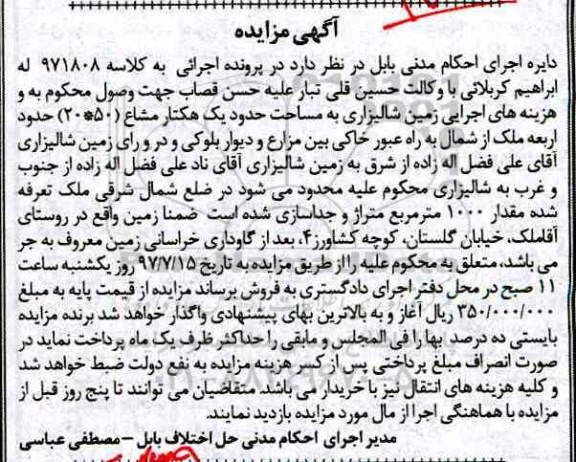 آگهی مزایده
دایره اجرای احکام مدنی بابل در نظر دارد در پرونده اجرائی به کلاسه ۹۷۱۸۰۸ له
ابراهیم کربلائی با وکالت حسین قلی تبار علیه حسن قصاب جهت وصول محکوم به و
هزینه های اجرایی زمین شالیزاری به مساحت حدود یک هکتار مشاع (۵۰*۲۰) حدود
اربعه ملک از شمال به راه عبور خاکی بین مزارع و دیوار بلوکی و در و رای زمین شالیزاری
آقای علی فضل اله زاده از شرق به زمین شالیزاری آقای ناد علی فضل اله زاده از جنوب
و غرب به شالیزاری محکوم علیه محدود می شود در ضلع شمال شرقی ملک تعرفه
شده مقدار ۱۰۰۰ مترمربع متراژ و جداسازی شده است ضمنا زمین واقع در روستای
آقاملک، خیابان گلستان، کوچه کشاورز۴، بعد از گاوداری خراسانی زمین معروف به جر
می باشد، متعلق به محکوم علیه رااز طریق مزایده به تاریخ ۹۷/۷/۱۵ روز یکشنبه ساعت
۱۱ صبح در محل دفتر اجرای دادگستری به فروش برساند مزایده از قیمت پایه به مبلغ
۳۵۰/۰۰۰/۰۰۰ ریال آغاز و به بالاترین بهای پیشنهادی واگذار خواهد شد برنده مزایده
بایستی ده درصد بها را فی المجلس و مابقی را حداکثر ظرف یک ماه پرداخت نماید در
صورت انصراف مبلغ پرداختی پس از کسر هزینه مزایده به نفع دولت ضبط خواهد شد
و کلیه هزینه های انتقال نیز با خریدار می باشد. متقاضیان می توانند تا پنج روز قبل از
مزایده با هماهنگی اجرا از مال مورد مزایده بازدید نمایند.
مدیر اجرای احکام مدنی حل اختلاف بابل – مصطفی عباسی